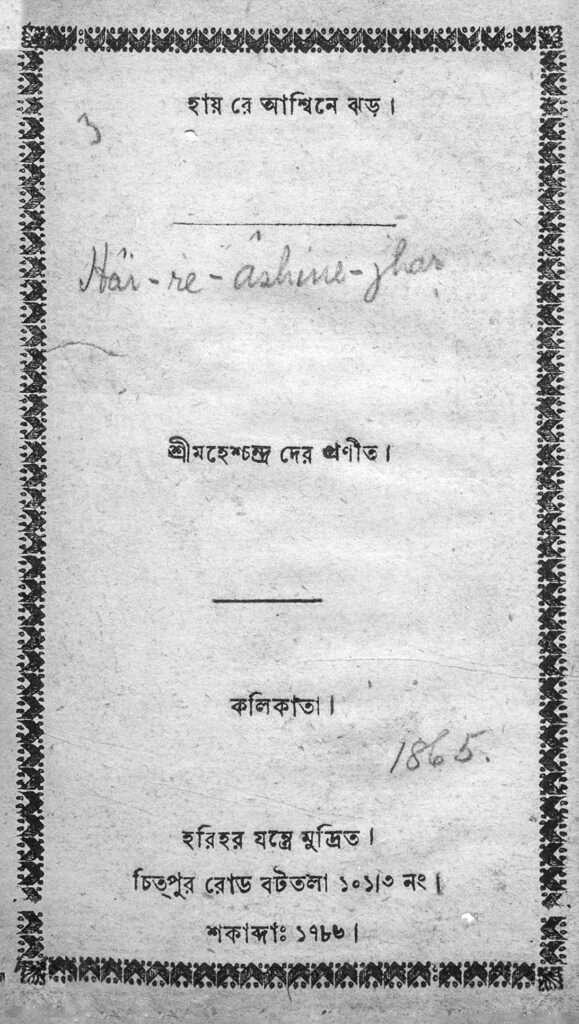 হায় রে আশ্বিনে ঝড়।
3
Hâi-re-âshine-jhar
শ্রীমহেশচন্দ্র দের প্রণীত।
কলিকাতা।
1865.
হরিহর যন্ত্রে মুদ্রিত।
চিতপুর রোড বটতলা ১০১।৩ নং।
শকাব্দাঃ ১৭৮৬।